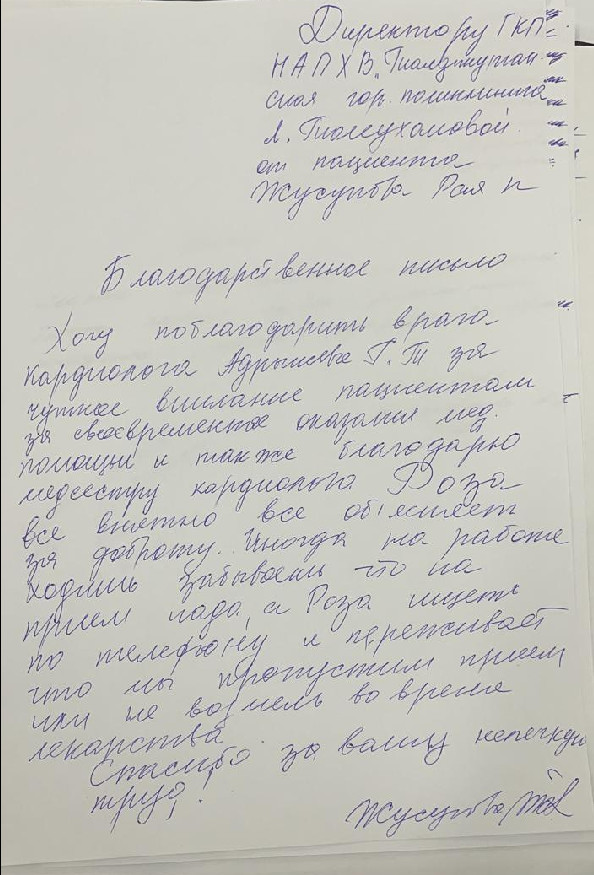 Директору ГКП
НА ПХВ
ская гор. поликлиника
от пациента
Жусупова Рая
Благодарственное письмо
Хочу поблагодарить врача
кардиолога Г. Т за
чуткое внимание пациентам
за своевременное оказания мед.
помощи и также благодарю
медсестру кардиолога Роза
все внятно все объяснеет
за доброту. Иногда на работе
ходишь забываешь что на
прием надо, а Роза ищеть
по телефону и переживает
что мы пропустим прием
или не во время
лекарства.
Спасибо за вашу
труд!
Жусупова